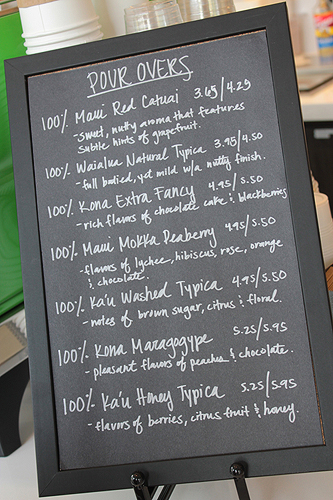 POUR OVERS
100% Maui Red Catuai 3.65/4.25
-sweet, nutty aroma that features
subtle hints of grapefruit.
100% Waialua Natural Typica 3.95/4.50
-full bodied, yet mild w/a nutty finish.
100% Kona Extra Fancy 4.95/5.50
-rich flavors of chocolate cake & blackberries
100% Maui Mokka Peaberry 4.95/5.50
-flavors of lychee, hibiscus, rose, orange
& chocolate.
100% Ka'u Washed Typica 4.95/5.50
-notes of brown sugar, citrus & floral.
100% Kona Maragogype 5.25/5.95
-pleasant flavors of peaches & chocolate.
100% Ka'u Honey Typica 5.25/5.95
-flavors of berries, citrus fruit & honey.